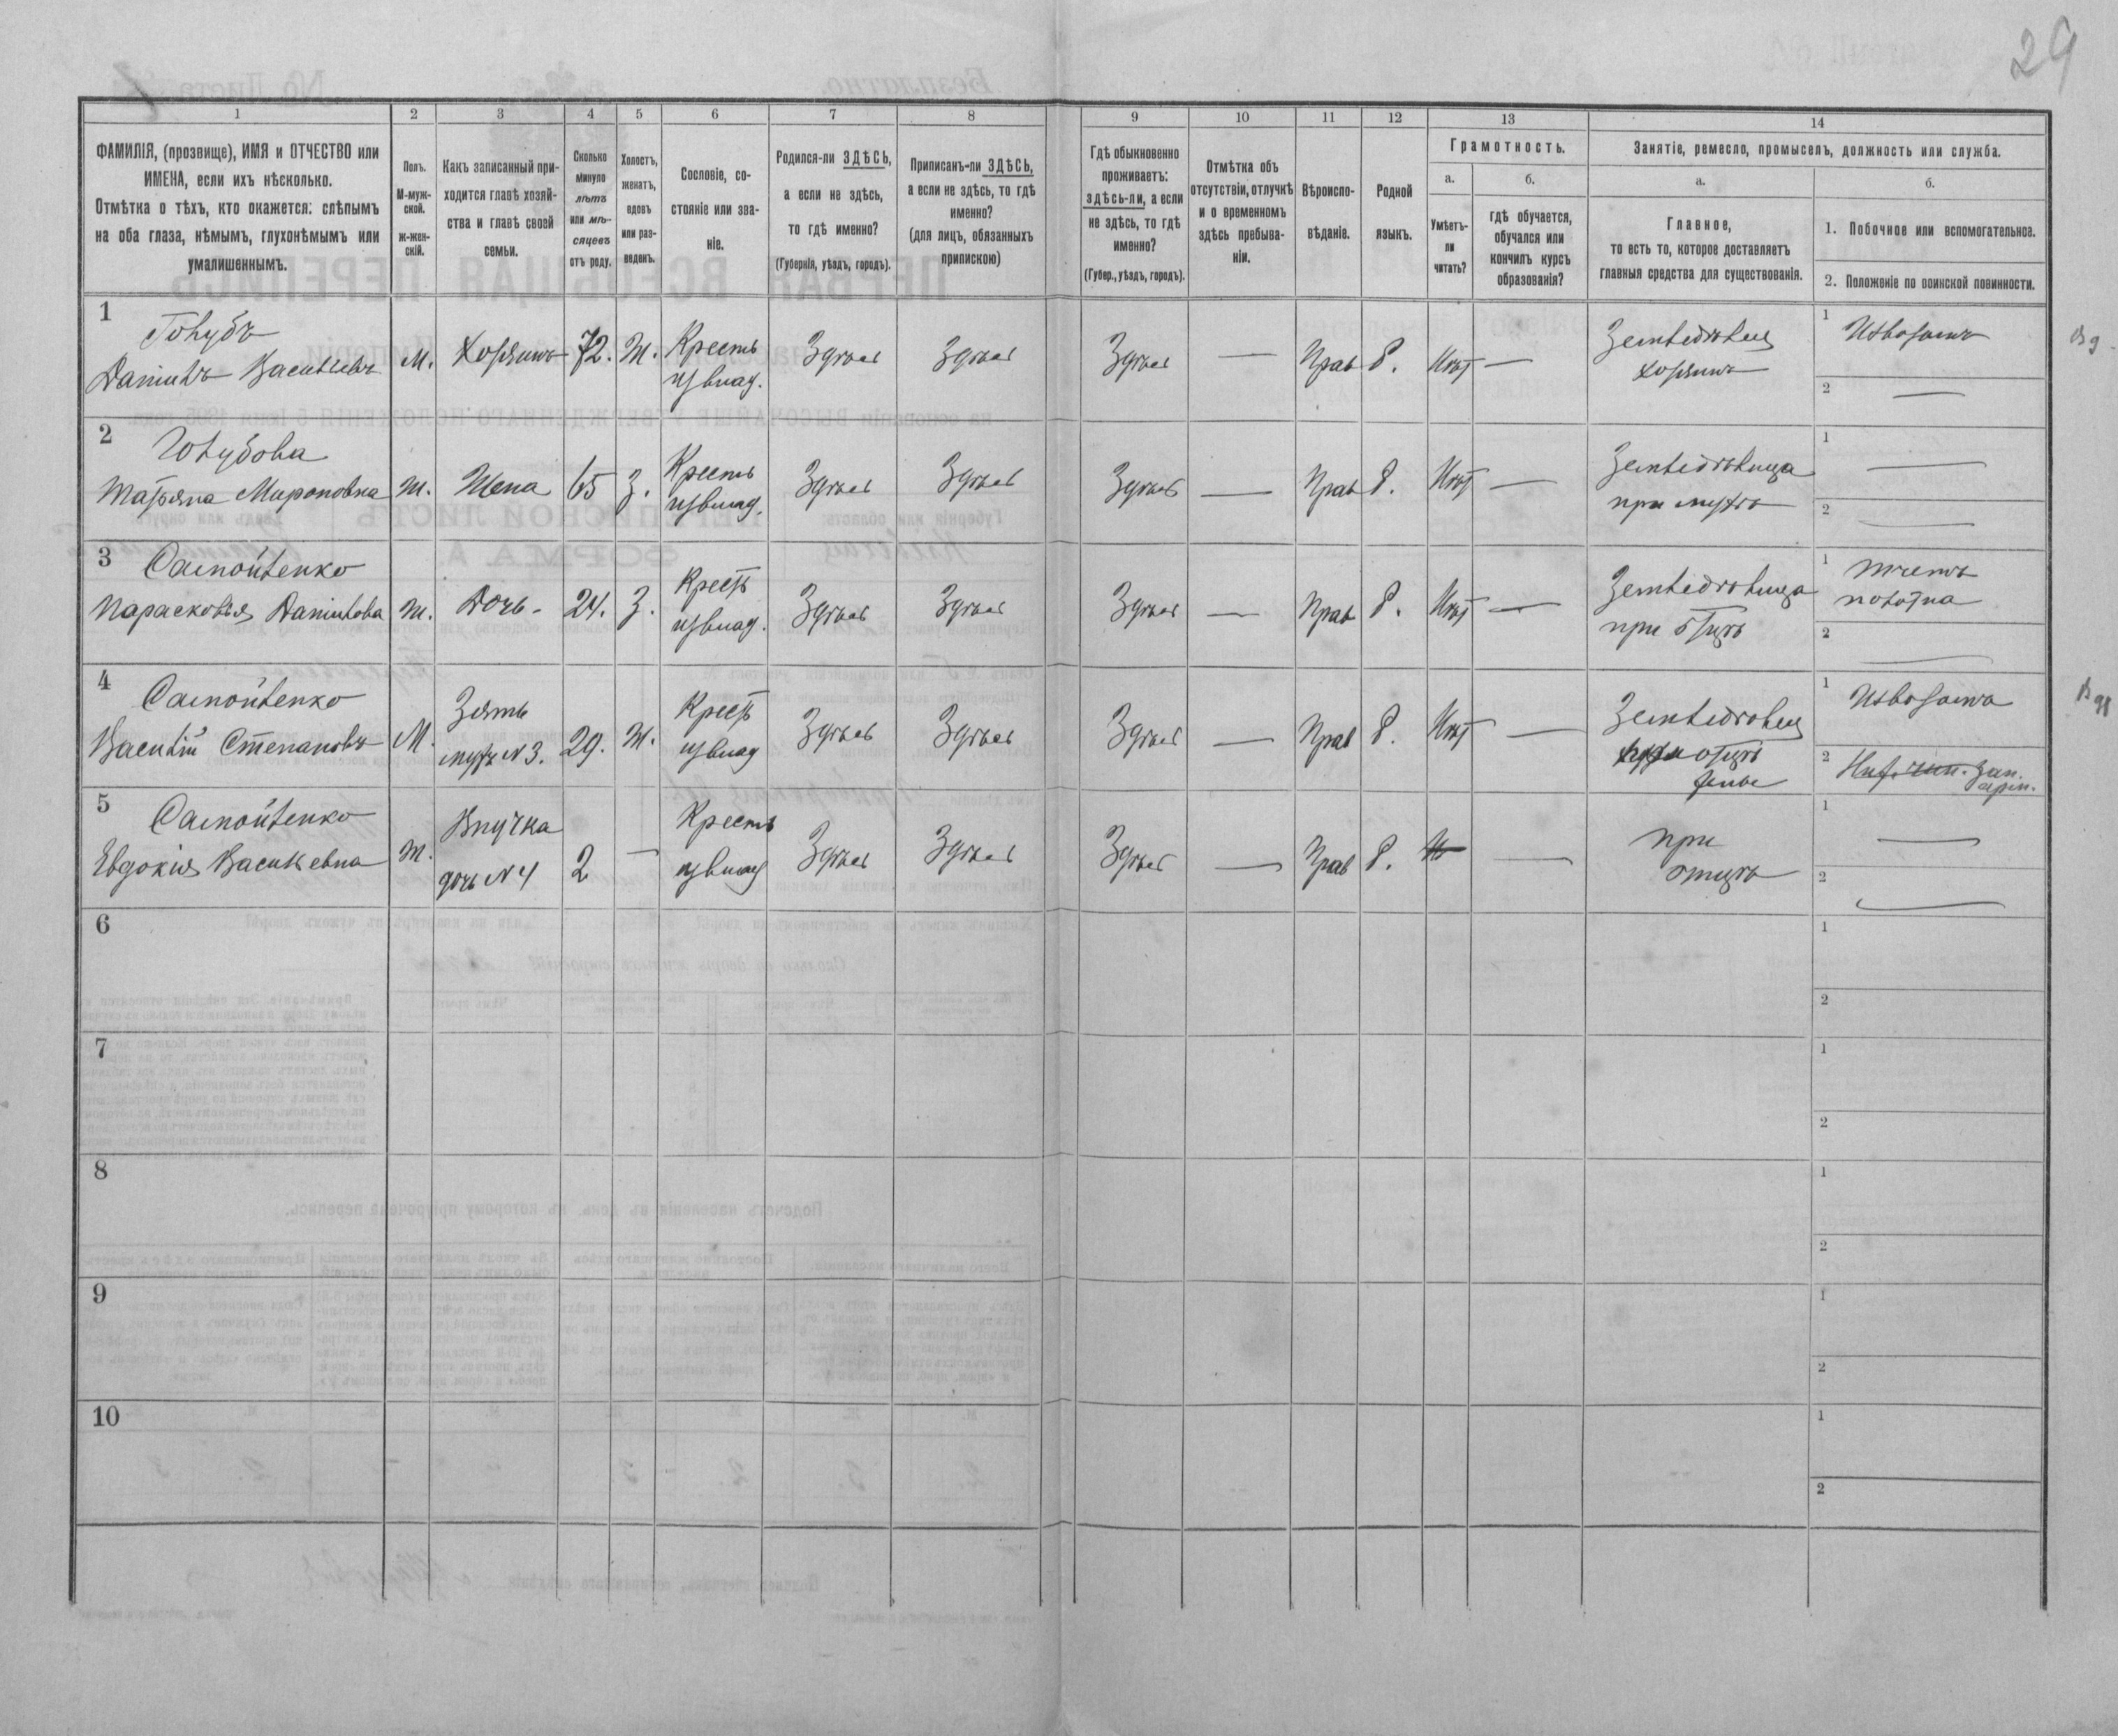 29
1
2
3
4
5
6
7
8
9
10
11
12
13
14
ФАМИЛІЯ, (прозвище), ИМЯ и ОТЧЕСТВО или
ИМЕНА, если ихъ нѣсколько.
Отмѣтка о тѣхъ, кто окажется: слѣпымъ
на оба глаза, нѣмымъ, глухонѣмымъ или
умалишеннымъ.
Полъ.
М-муж-
ской.
ж-жен-
скій.
Какъ записанный при-
ходится главѣ хозяй-
ства и главѣ своей
семьи.
Сколько
минуло
лѣтъ
или мѣ-
сяцевъ
отъ роду.
Холостъ,
женатъ,
вдовъ
или раз-
веденъ.
Сословіе, со-
стояніе или зва-
ніе.
Родился-ли ЗДѢСЬ,
а если не здѣсь,
то гдѣ именно?
(Губернія, уѣздъ, городъ).
Приписанъ-ли ЗДѢСЬ,
а если не здѣсь, то гдѣ
именно?
(для лицъ, обязанныхъ
припискою)
Гдѣ обыкновенно
проживаетъ:
здѣсь-ли, а если
не здѣсь, то гдѣ
именно?
(Губер., уѣздъ, городъ).
Отмѣтка объ
отсутствіи, отлучкѣ
и о временномъ
здѣсь пребыва-
ніи.
Вѣроиспо-
вѣданіе.
Родной
языкъ.
Грамотность.
а.
Умѣетъ-
ли
читать?
б.
гдѣ обучается,
обучался или
кончилъ курсъ
образованія?
Занятіе, ремесло, промыселъ, должность или служба.
а.
Главное,
то есть то, которое доставляетъ
главныя средства для существованія.
б.
1. Побочное или вспомогательное.
2. Положеніе по воинской повинности.
1
Голубъ
Даніилъ Васильевъ
М.
Хозяинъ
72.
Ж.
Крестъ
изъ влад.
Здѣсь
Здѣсь
Здѣсь
—
Прав
Р.
Нѣт
—
Земледѣлец
хозяинъ
1
Извозомъ
2
—
2
Голубова
Татьяна Мироновна
Ж.
Жена
65
З.
Крестъ
изъ влад.
Здѣсь
Здѣсь
Здѣсь
—
Прав
Р.
Нѣт
—
Земледѣлица
при мужѣ
1
—
2
—
3
Самойленко
Парасковья Даніилова
Ж.
Дочь
24.
З.
Крест
изъ влад.
Здѣсь
Здѣсь
Здѣсь
—
Прав
Р.
Нѣт
—
Земледѣлица
при отцѣ
1
полотна
2
—
4
Самойленко
Василій Степановъ
М.
Зять
мужъ N 3.
29.
Ж.
Крест
изъ влад
Здѣсь
Здѣсь
Здѣсь
—
Прав
Р.
Нѣт
—
Земледѣлец
отцѣ
жены
1
Извозомъ
2
Ниж. чин. зап.
арм.
5
Самойленко
Евдокія Васильевна
Ж.
Внучка
дочь N 4
2
—
Крестъ
изъ влад
Здѣсь
Здѣсь
Здѣсь
—
Прав
Р.
—
при
отцѣ
1
—
2
—
6
1
2
7
1
2
8
1
2
9
1
2
10
1
2